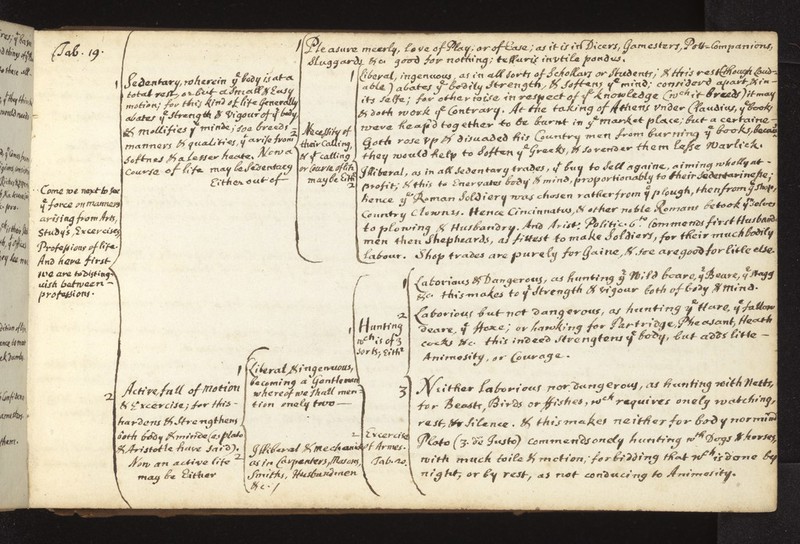 Tab. 19.
Come we next to see
ye force on manners
arising from Arts,
Study's, Exercises,
Professions of life.
And here first
we are to disting-
uish between
professions.
1
Sedentary, wherein ye body is at a
total rest, or but in small & Easy
motion; for this kind of life Generally
abates ye strength & vigour of ye body
& mollifies ye minde; soe breeds
manners & qualities, yt arise from
softnes & a lesser heate. Now a
course of life may be Sedentary
Either out of
1
Pleasure meerly, love of Play; or of Ease; as it is in Dicers, Gamesters, Pott-Companions,
sluggards &c good for nothing; telluris inutile pondus.
2
Necessity of
their Calling,
& ye calling
or Course of life
may be Eith
1
Liberal, ingenuous, as in all sorts of Schollars or Students; & this rest (though Laud-
able) abates ye bodily strength, & softens ye mind; consider'd apart, & in-
its selfe; for otherwise in respect of ye knowledge (wch it breeds) it may
& doth work ye Contrary. At the taking of Athens under Claudius, ye books
were heap'd together to be burnt in ye market place; but a certaine
Goth rose up & disuaded his Country men from burning ye books, because
they would help to soften ye Greeks, & so render them lesse Warlick.
2
Illiberal, as in all sedentary trades, yt buy to sell againe, aiming wholly at
profit; & this to Enervates body & mind, proportionably to their Sedentarinesse;
hence ye Roman Soldiery was chosen rather from ye plough, then from ye shop,
Country Clownes. Hence Cincinnatus, & other noble Romans betook ymselves
to plowing & Husbandry. And Arist: Politic. 6to Commends first Husband-
men then Shepheards, as fittest to make Soldiers, for their much bodily
labour. Shop trades are purely for Gaine, & soe are good for litle else.
2
Active full of Motion
& Exercise; for this
hardens & strengthens
both body & minde (as plato
& Aristotle have said).
Now an active life
may be Either
1
Liberal & ingenuous,
becoming a Gentleman
whereof we shall men-
tion onely two
2
Illiberal & mechanick
as in Carpenters, Masons,
Smiths, Husbandmen
&c.
1
Hunting
wch is of 3
sorts, Eithr
2
Exercise
of Armes.
Tab. 20.
1
Laborious & Dangerous, as hunting ye Wild beare, ye Beare, ye Stagg
&c this makes to ye strength & vigour both of body & mind.
2
Laborious but not dangerous, as hunting ye Hare, ye fallow
deare, ye Foxe; or hawking for Partridge, Pheasant, Heath
cocks &c this indeed strengtens ye body, but adds litle
Animosity, or Courage.
3
Neither laborious nor dangerous, as hunting with Netts,
for Beasts, Birds or ffishes, wch requires onely watching,
rest, & silence. & this makes neither for body nor mind
Plato (3. de Justo) commends onely hunting wth Dogs & horses,
with much toile & motion; forbidding that wch is done by
night, or by rest, as not conducing to Animosity.